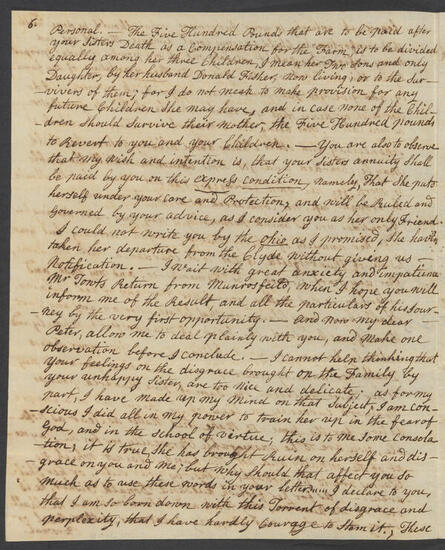 6.
Personal. — The Five Hundred Pounds that are to be paid after
your Sisters Death as a Compensation for the Farm, is to be divided
equally among her three Children, I mean her Two Sons and only
Daughter, by her husband Donald Fisher, now living; or to the Sur-
vivers of them; for I do not mean to make provision for any
future Children She may have, and in case none of the Chil-
dren should survive their mother, the Five Hundred pounds
to Revert to you and your Children. — You are also to observe
that my wish and intention is, that your Sisters annuity shall
be paid by you on this express condition, namely, That She puts
herself under your Care and Protection, and will be Ruled and
Governed by your advice, as I consider you as her only Friend.
I could not write you by the Ohio as I promised, She having
taken her departure from the Clyde without giving us
Notification. — I wait with great anxiety and impatience
Mr Return from Munrosfeild, when I hope you will
inform me of the Result and all the particulars of his Jour-
ney by the very first opportunity. — And now my dear
Peter, allow me to deal plainly with you, and make one
observation before I conclude. — I cannot help thinking that
your feelings on the disgrace brought on the Family by
your unhappy Sister, are too nice and delicate; as for my
part, I have made up my mind on that Subject; I am con-
scious I did all in my power to train her up in the fear of
God, and in the school of vertue; this is to me Some Consola-
tion; it is true She has brought Ruin on herself and dis-
grace on you and me; but why should that affect you so
much as to use these words in your letter I declare to you,
that I am so born down with this Torrent of disgrace and
perplexity, that I have hardly Courage to Stem it; These